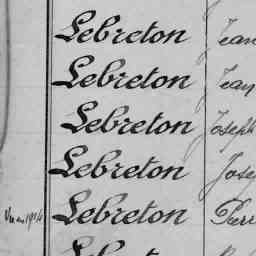 Lebreton Jean
Lebreton Jean
Lebreton Joseph
Lebreton
Vu en 1914 Lebreton
Lebreton